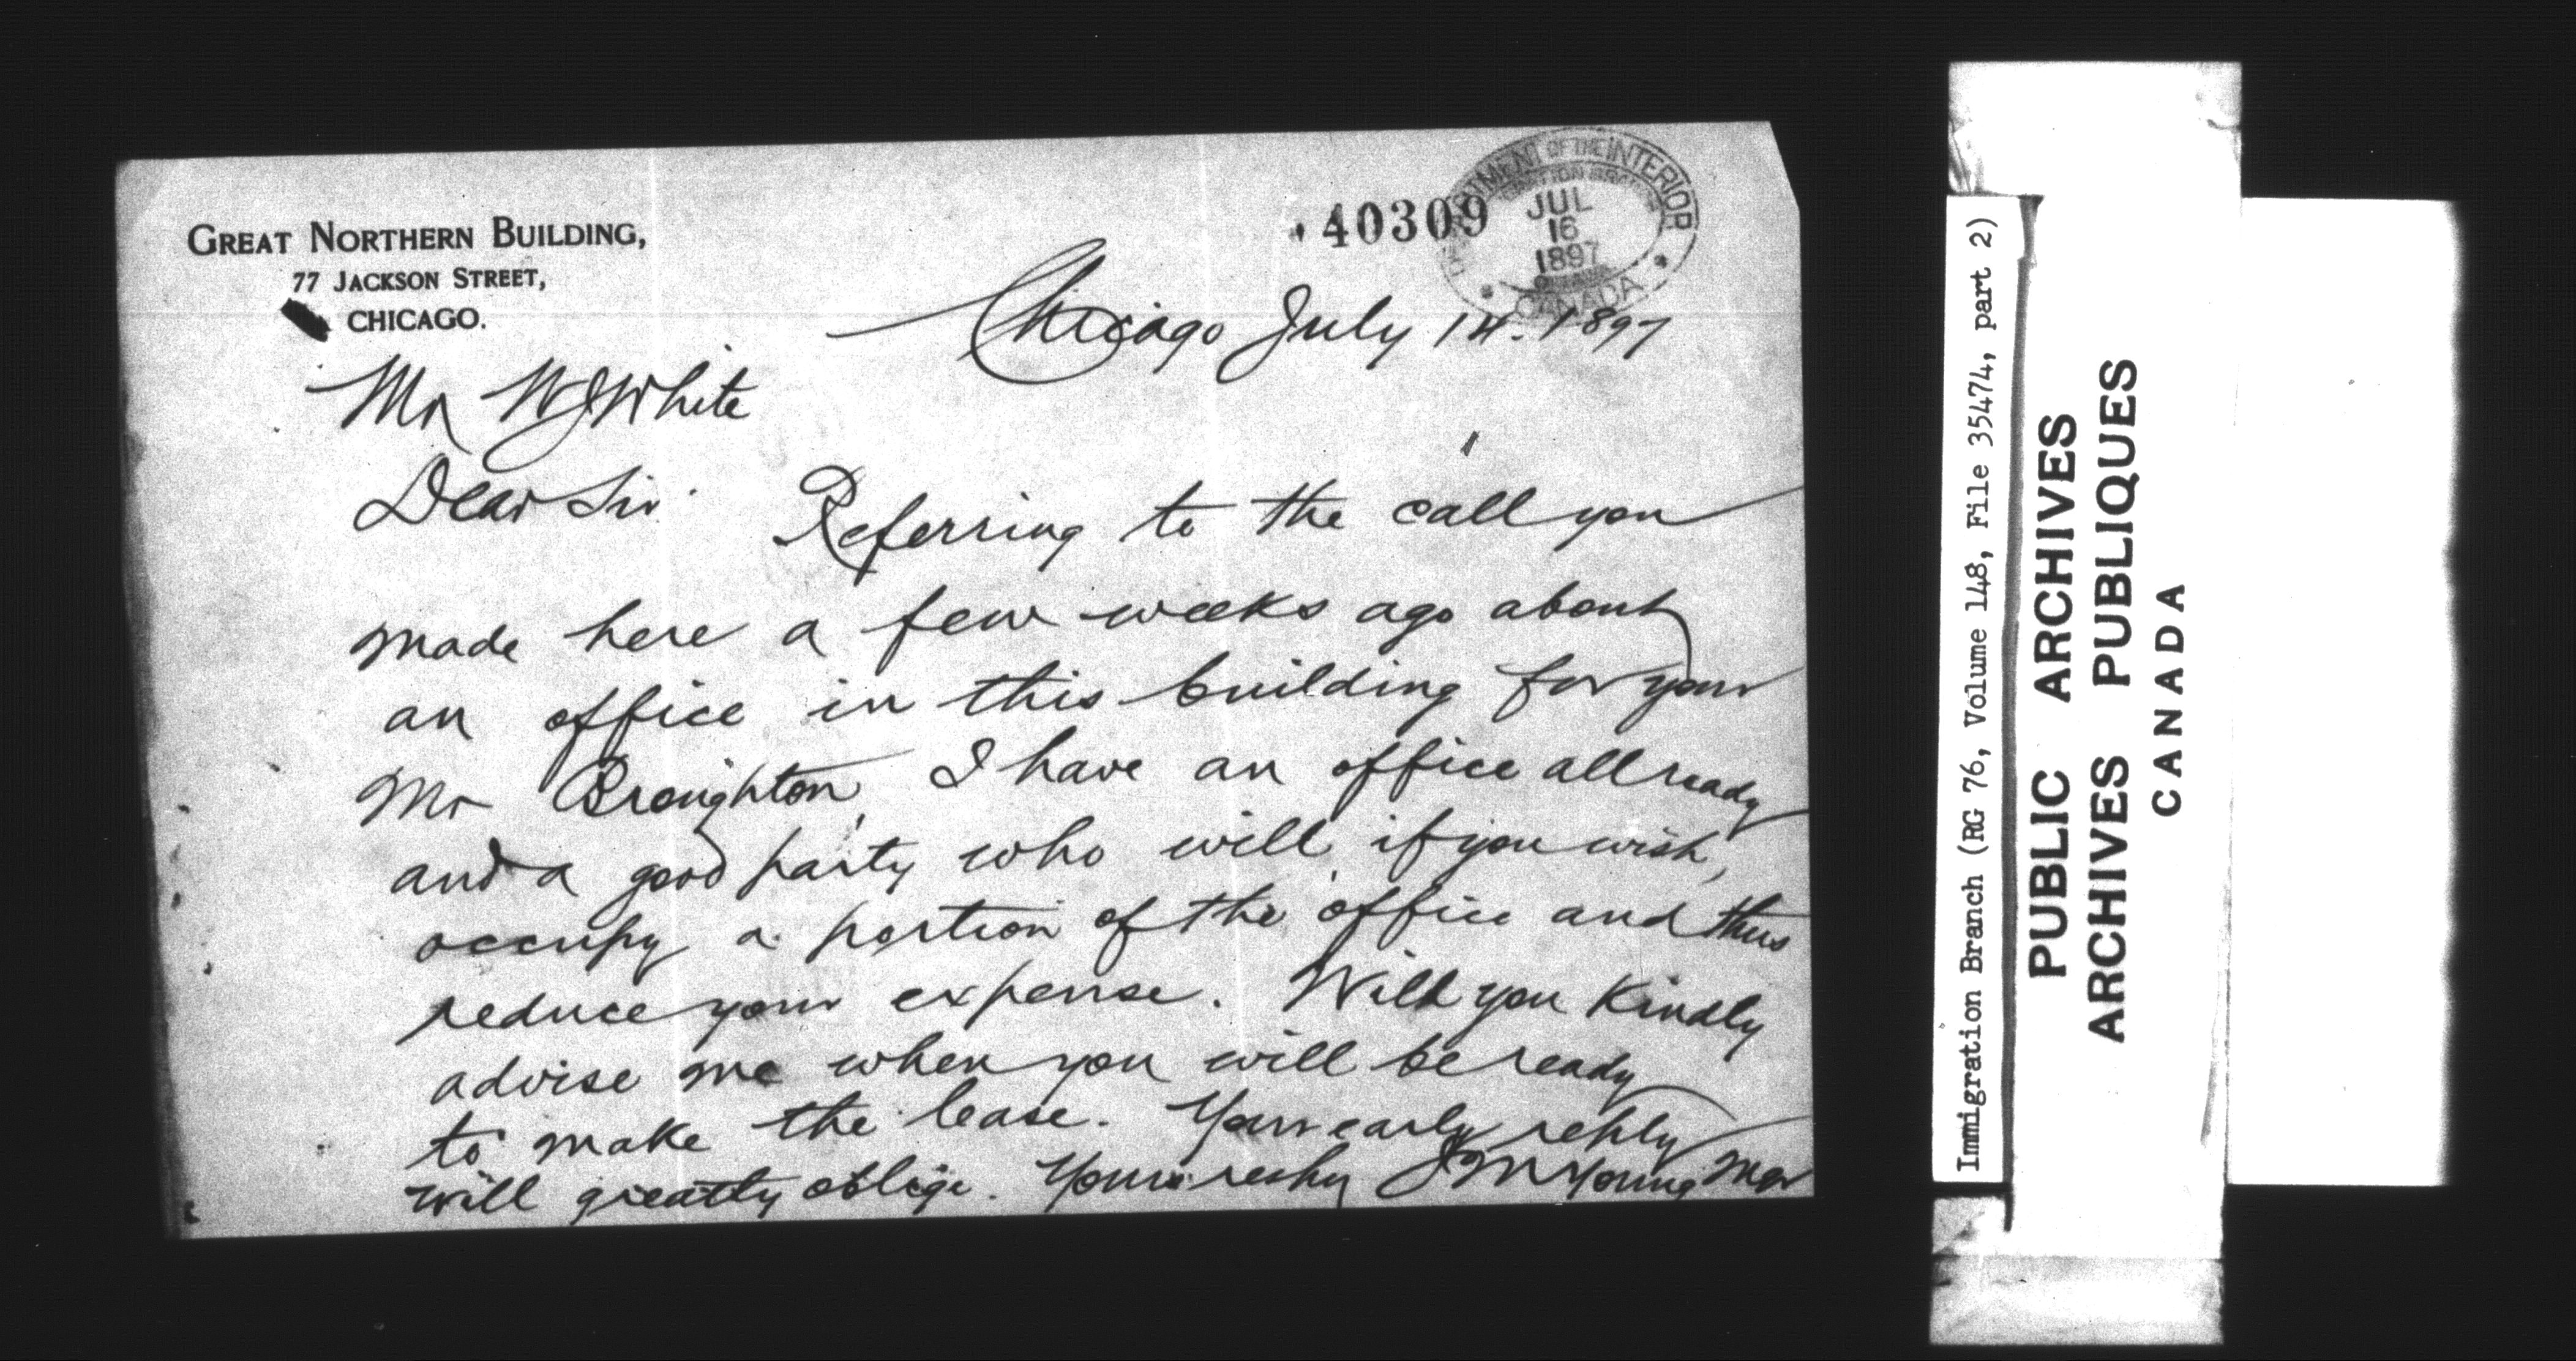 GREAT NORTHERN BUILDING,
77 JACKSON STREET,
CHICAGO.
40309
DEPARTMENT OF THE INTERIOR
JUL
16
1897
OTTAWA
CANADA
Chicago July 14. 1897
Mr WJ White
Dear Sir
Referring to the call you
made here a few weeks ago about
an office in this building for your
Mr Broughton, I have an office all ready
and a good party who will, if you wish,
occupy a portion of the office and thus
reduce your expense. Will you Kindly
advise me when you will be ready
to make the lease. Your early reply
will greatly oblige. Yours resply J M Young Mgr
Immigration Branch (RG 76, Volume 148, File 35474, part 2)
PUBLIC ARCHIVES
ARCHIVES PUBLIQUES
CANADA